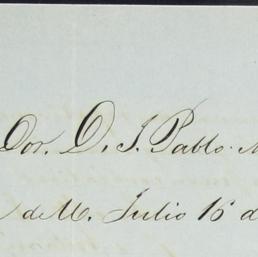 Dor. D. J. Pablo
de M. Julio 16 d